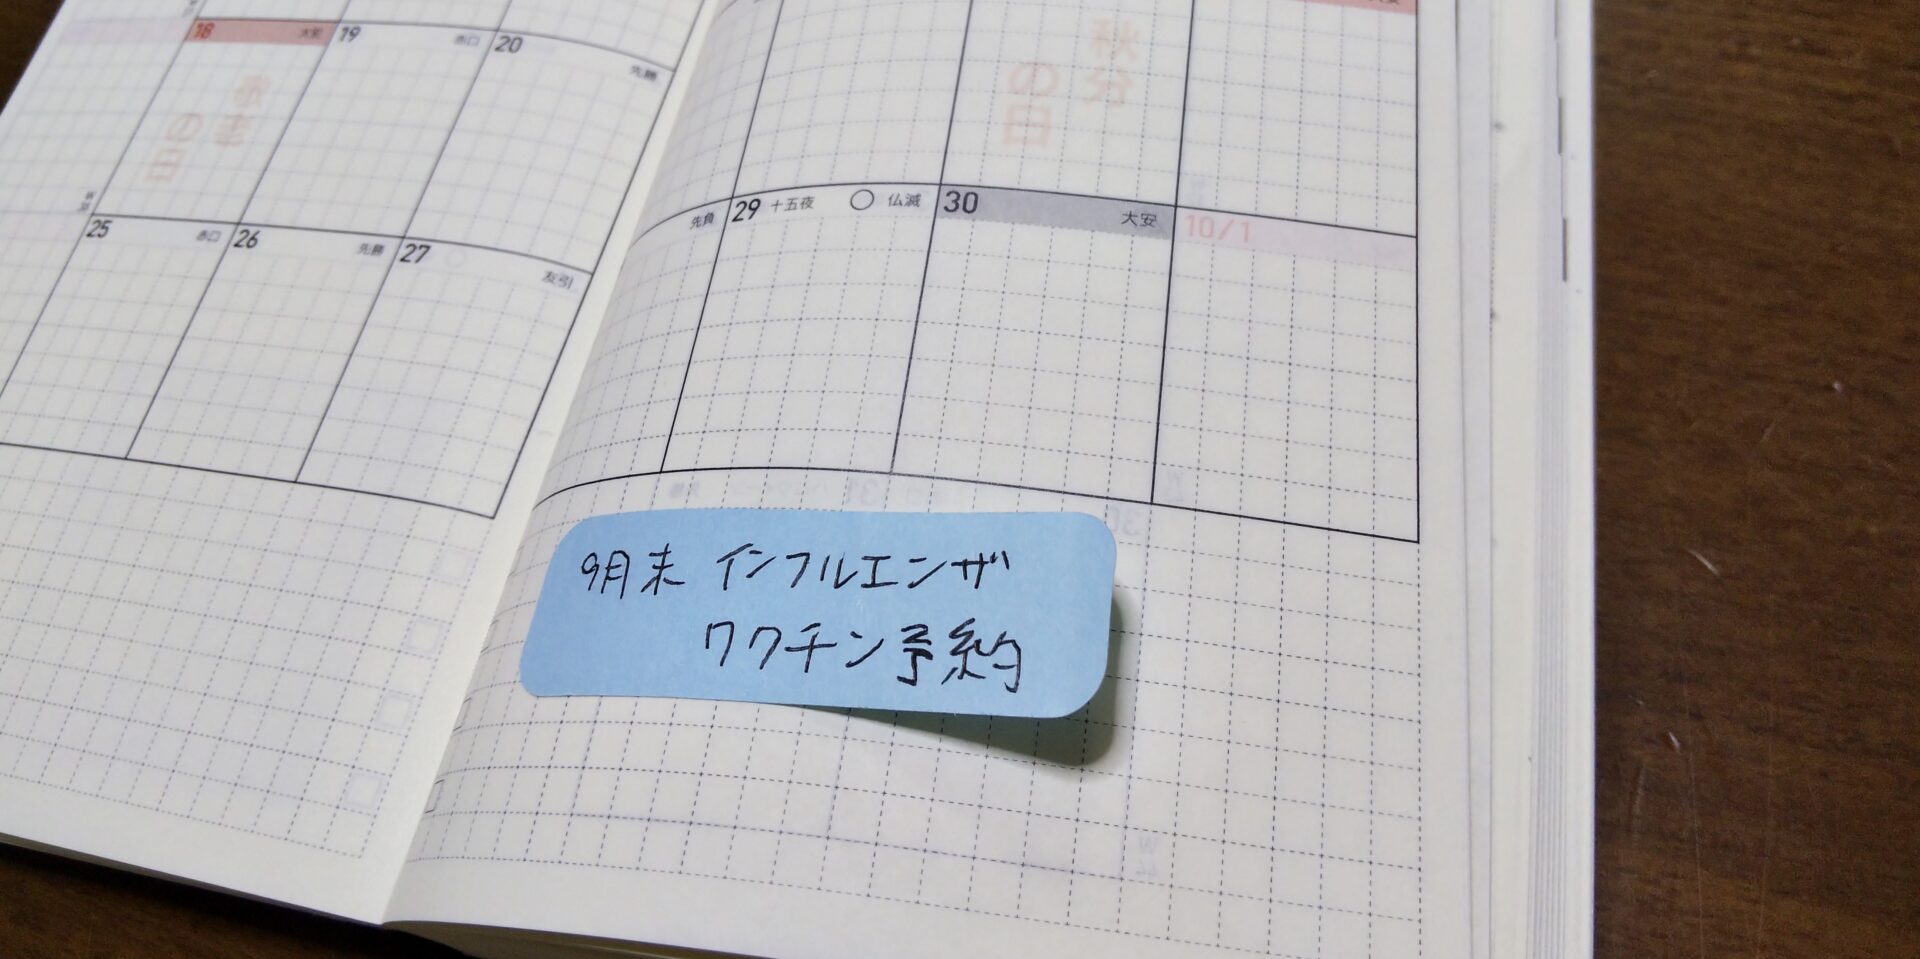 18 大安
敬老
の日
19 赤口
20 先勝
25 赤口
26 先勝
27 友引
秋分
の日
先負
29 十五夜 ○ 仏滅
30 大安
10/1
9月末 インフルエンザ
ワクチン予約